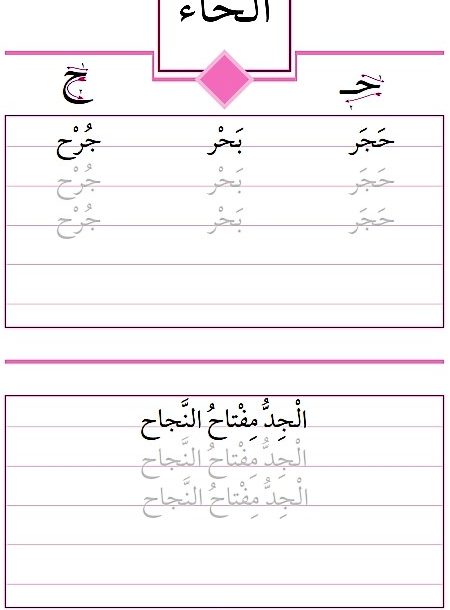 الحاء
حـ ح
حَجَر بَحْر جُرْح
حَجَر بَحْر جُرْح
حَجَر بَحْر جُرْح
الْجِدُّ مِفْتاحُ النَّجاح
الْجِدُّ مِفْتاحُ النَّجاح
الْجِدُّ مِفْتاحُ النَّجاح